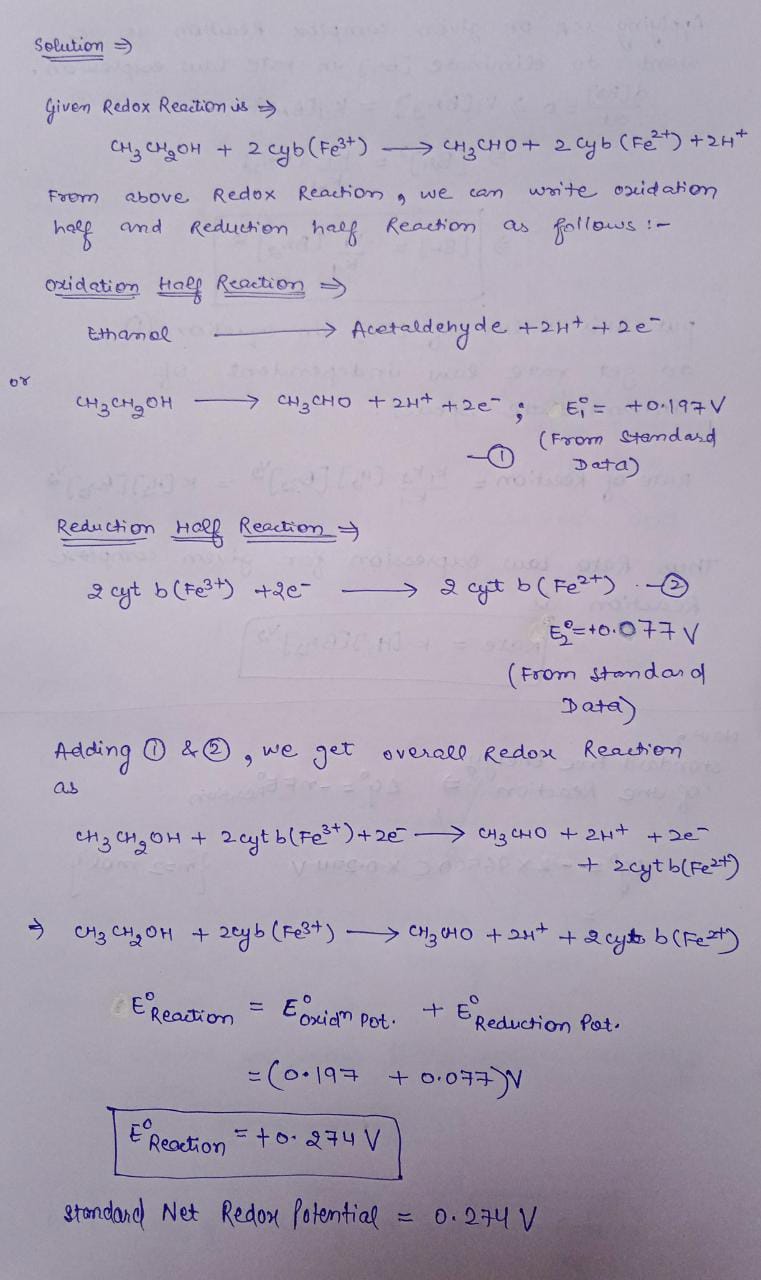 Solution ⇒
Given Redox Reaction is ⇒
CH₃CH₂OH + 2 cyb(Fe³⁺) ⟶ CH₃CHO + 2 Cyb (Fe²⁺) + 2H⁺
From above Redox Reaction, we can write oxidation
half and Reduction half Reaction as follows :-
Oxidation Half Reaction ⇒
Ethanol ⟶ Acetaldehyde + 2H⁺ + 2e⁻
or
CH₃CH₂OH ⟶ CH₃CHO + 2H⁺ + 2e⁻ ; E₁° = +0.197 V
—① (From Standard
Data)
Reduction Half Reaction ⇒
2 cyt b (Fe³⁺) + 2e⁻ ⟶ 2 cyt b (Fe²⁺) —②
E₂° = +0.077 V
(From standard
Data)
Adding ① & ②, we get overall Redox Reaction
as
CH₃CH₂OH + 2cyt b(Fe³⁺) + 2e⁻ ⟶ CH₃CHO + 2H⁺ + 2e⁻
+ 2cyt b(Fe²⁺)
⇒ CH₃CH₂OH + 2cyb (Fe³⁺) ⟶ CH₃CHO + 2H⁺ + 2 cyt b (Fe²⁺)
E°Reaction = E°oxidⁿ Pot. + E°Reduction Pot.
= (0.197 + 0.077)V
E°Reaction = +0.274 V
Standard Net Redox Potential = 0.274 V